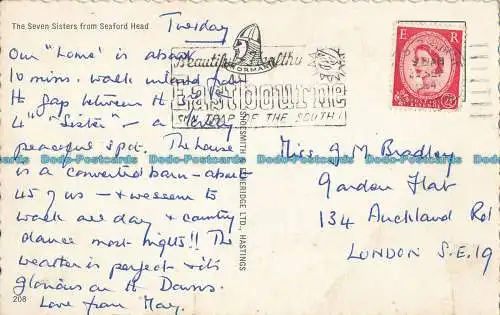 The Seven Sisters from Seaford Head
Tuesday
Our "home" is about
10 mins. walk inland from
the gap between the
4th "Sister" – a lovely
peaceful spot. The house
is a converted barn – about
45 of us – & we seem to
walk all day & country
dance most nights!! The
weather is perfect & it's
glorious on the Downs.
Love from May.
208
SHOESMITH & ETHERIDGE LTD., HASTINGS
Beautiful Healthy
NORMAN
Eastbourne
SUN TRAP OF THE SOUTH!
E R
Miss G M Bradley
Garden Flat
134 Auckland Rd
LONDON S.E.19
Dodo-Postcards Dodo-Postcards Dodo-Postcards Dodo-Postcards Dodo-Postcards